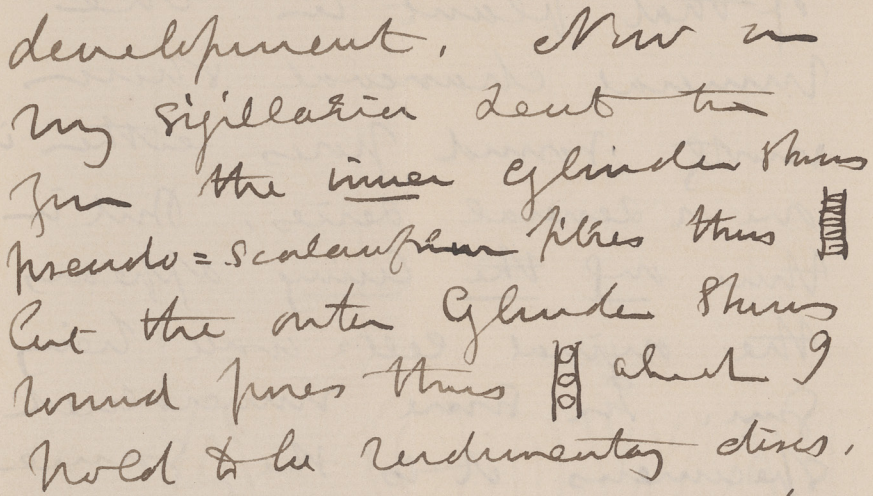 development. Now in
my Sigillaria sent to
you the inner Cylinder shows
pseudo=scalariform fibres thus
but the outer Cylinder shows
round pores thus which I
hold to be rudimentary discs.